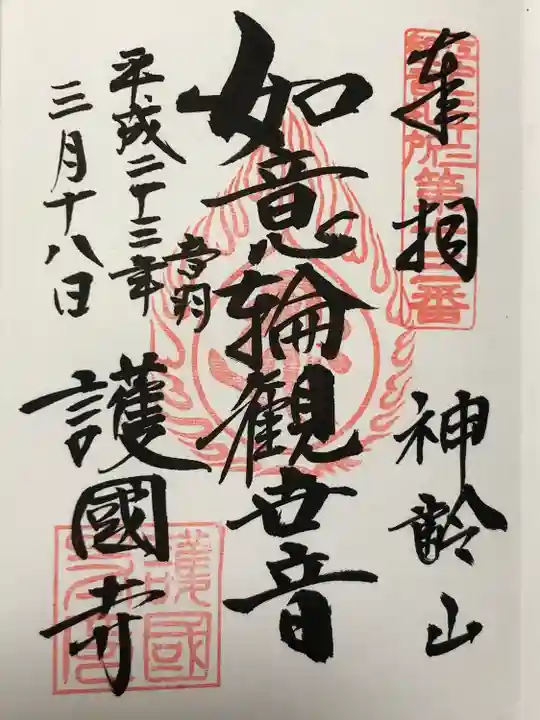 奉拝
神齢山
如意輪観世音
音羽
護國寺
平成二十三年
三月十八日
第三十三番
護國